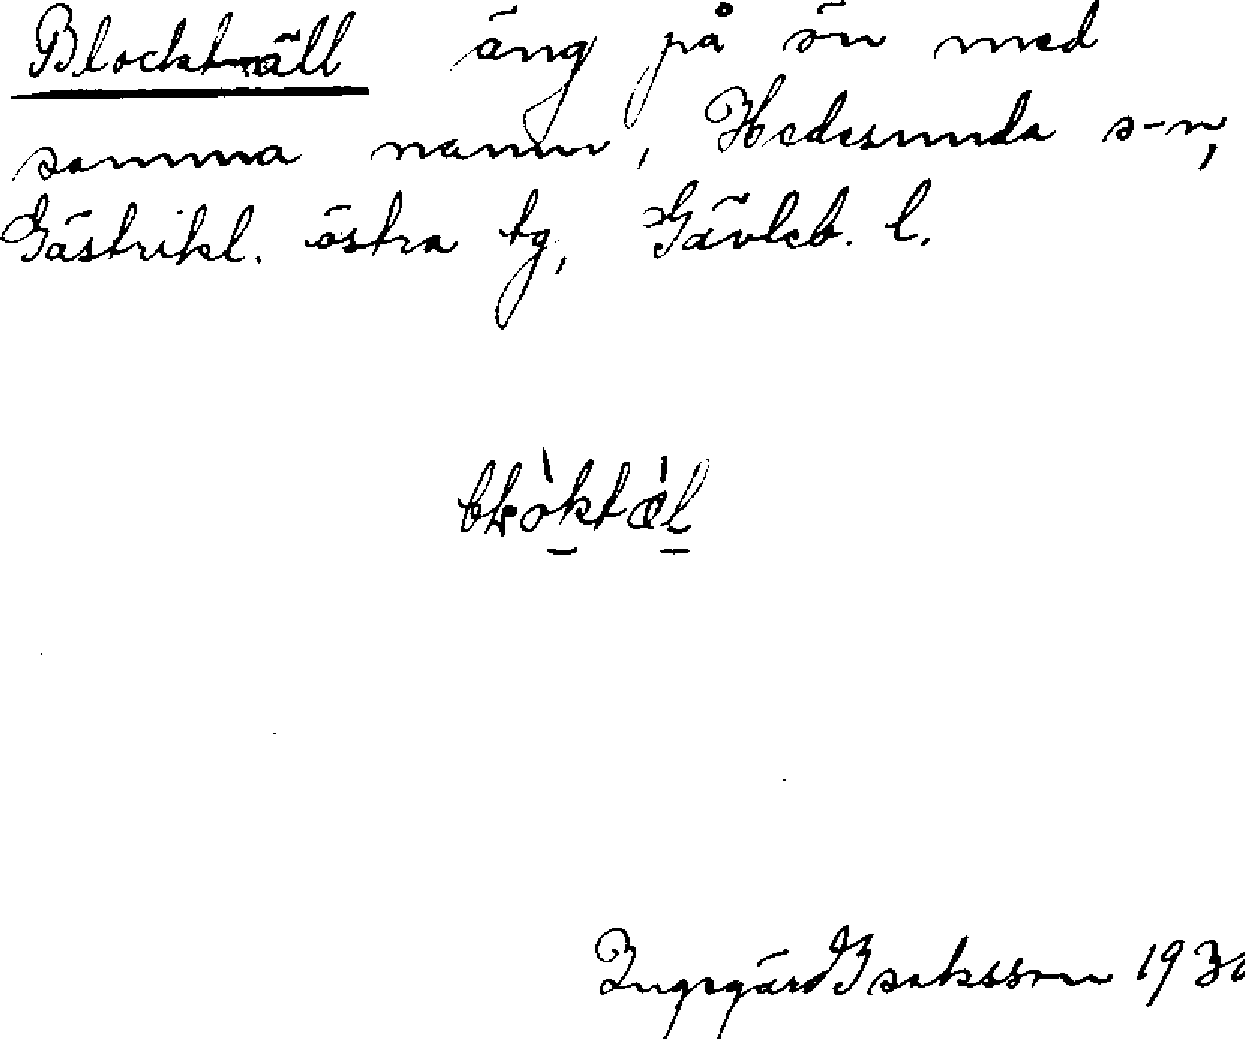 Blocktäll äng på ön med
samma namn, Hedesunda s-n,
Gästrikl. östra tg, Gävleb. l.
Ingegärd Isaksson 1930